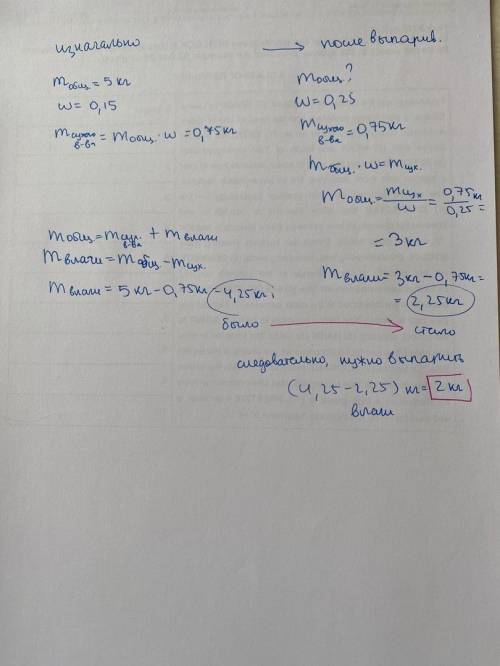 изначально → после выпарив.
mобщ = 5 кг
w = 0,15
mсухого в-ва = mобщ. · w = 0,75кг
mобщ ?
w = 0,25
mсухого в-ва = 0,75кг
mобщ. · w = mсух.
mобщ. = mсух / w = 0,75 кг / 0,25 =
= 3 кг
mобщ = mсух. в-ва + mвлаги
mвлаги = mобщ – mсух.
mвлаги = 5 кг – 0,75кг – 4,25кг,
было
mвлаги = 3кг – 0,75кг =
= 2,25кг
стало
следовательно, нужно выпарить
(4,25 – 2,25) кг = 2 кг
влаги